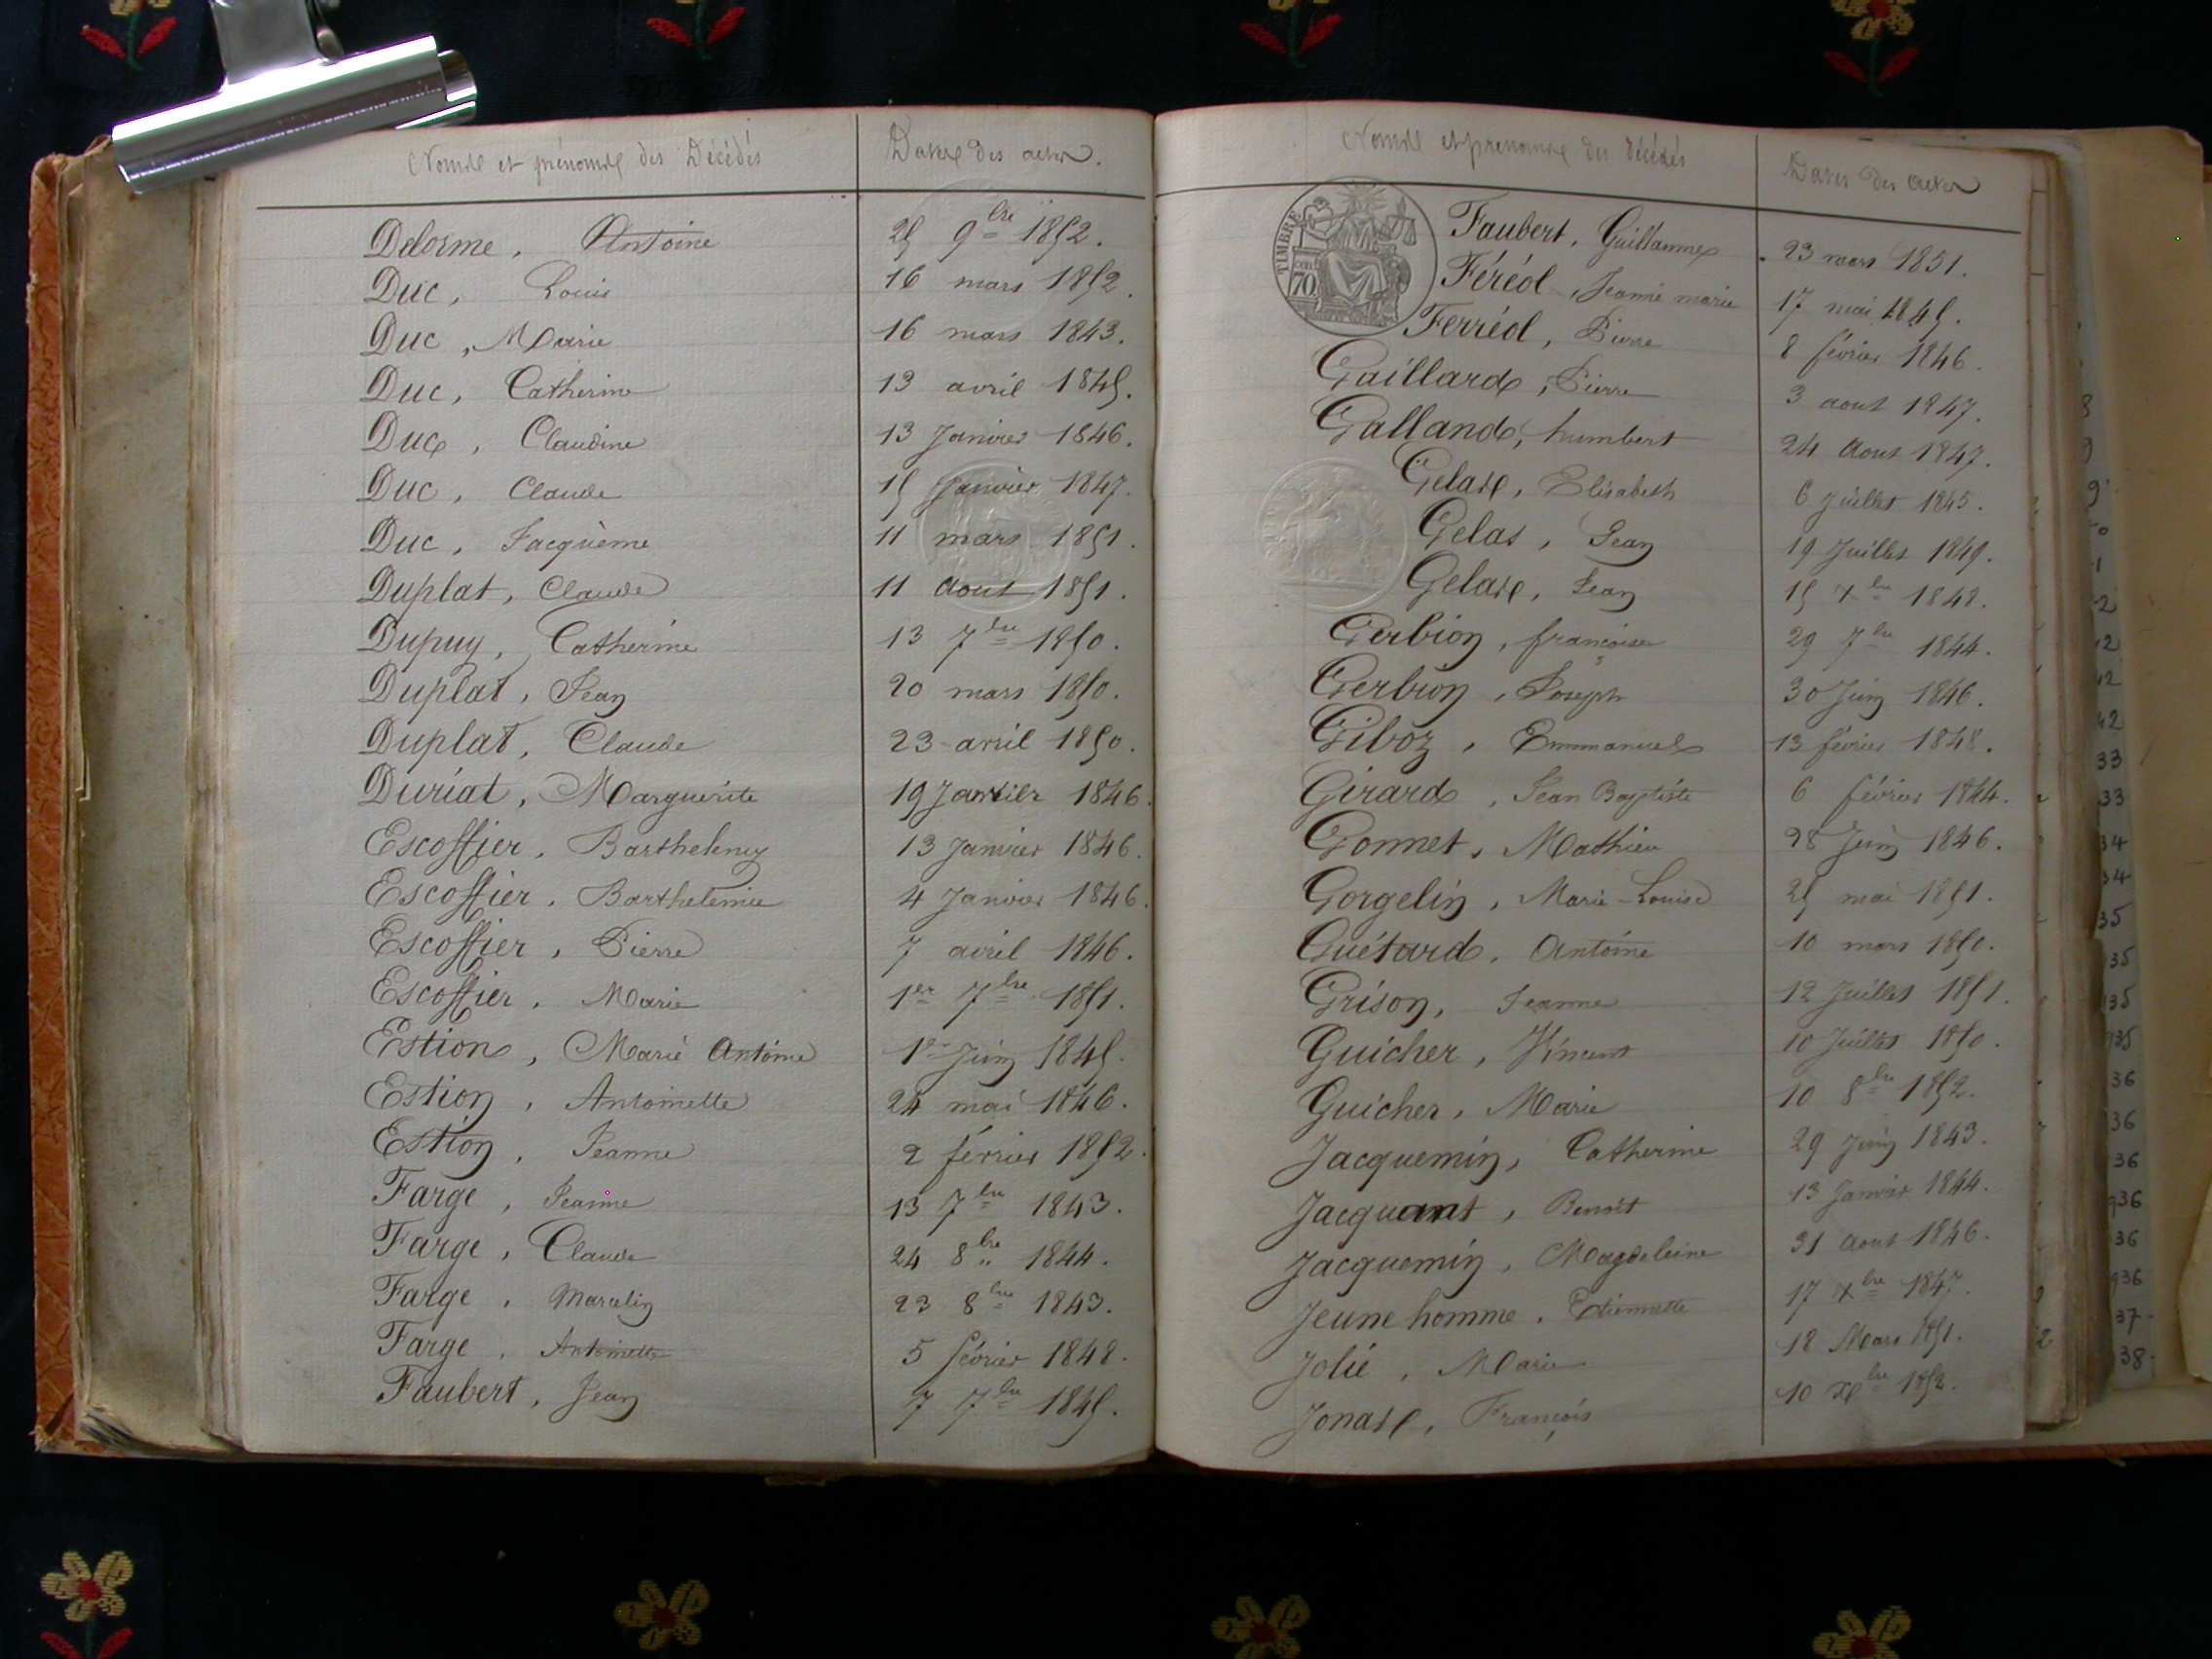 Noms et prénoms des Décédés
Dates des actes.
Delorme, Antoine 25 9bre 1852.
Duc, Louis 16 mars 1852.
Duc, Marie 16 mars 1843.
Duc, Catherine 13 avril 1845.
Duc, Claudine 13 Janvier 1846.
Duc, Claude 15 Janvier 1847.
Duc, Jacquème 11 mars 1851.
Duplat, Claude 11 Aout 1851.
Dupuy, Catherine 13 7bre 1850.
Duplat, Jean 20 mars 1850.
Duplat, Claude 23 avril 1850.
Duriat, Marguerite 19 Janvier 1846.
Escoffier, Barthelemy 13 Janvier 1846.
Escoffier, Barthelemie 4 Janvier 1846.
Escoffier, Pierre 7 avril 1846.
Escoffier, Marie 1er 7bre 1851.
Estion, Marie Antoine 1er Juin 1845.
Estion, Antoinette 24 mai 1846.
Estion, Jeanne 2 février 1852.
Farge, Jeanne 13 7bre 1843.
Farge, Claude 24 8bre 1844.
Farge, Marcelin 23 8bre 1843.
Farge, Antoinette 5 février 1848.
Faubert, Jean 7 7bre 1845.
Noms et prenoms des Décédés
Dates des Actes
TIMBRE
70
Faubert, Guillaume 23 mars 1851.
Féréol, Jeanne marie 17 mai 1845.
Ferréol, Pierre 8 février 1846.
Gaillard, Pierre 3 aout 1847.
Galland, humbert 24 Aout 1847.
Gelas, Elisabeth 6 Juillet 1845.
Gelas, Jean 19 Juillet 1849.
Gelas, Jean 15 Xbre 1848.
Gerbion, francoise 29 7bre 1844.
Gerbion, Joseph 30 Juin 1846.
Giboz, Emmanuel 13 février 1848.
Girard, Jean Baptiste 6 février 1844.
Gonnet, Mathieu 28 Juin 1846.
Gorgelin, Marie-Louise 25 mai 1851.
Guétard, Antoine 10 mars 1850.
Grison, Jeanne 12 Juillet 1851.
Guicher, Vincent 10 Juillet 1850.
Guicher, Marie 10 8bre 1852.
Jacquemin, Catherine 29 Juin 1843.
Jacquant, Benoit 13 Janvier 1844.
Jacquemin, Magdeleine 31 Aout 1846.
Jeune homme, Etiennette 17 Xbre 1847.
Jolié, Marie 18 Mars 1851.
Jonas, François 10 Xbre 1852.